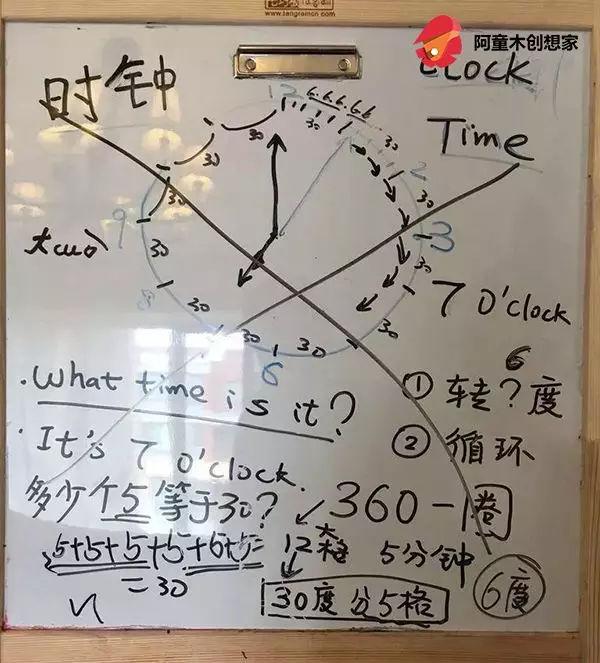 www.tangremcn.com
阿童木创想家
时钟
Clock
Time
12
6.6.6.6.6
30
30
30
2
30
9
30
3
30
30
8
30
30
30
30
30
6
two
7 O'clock
6
.What time is it?
① 转?度
· It's 7 O'clock.
② 循环
多少个5等于30?
360-1圈
5+5+5+5+6+5=
=30
12大格 5分钟
30度分5格
6度